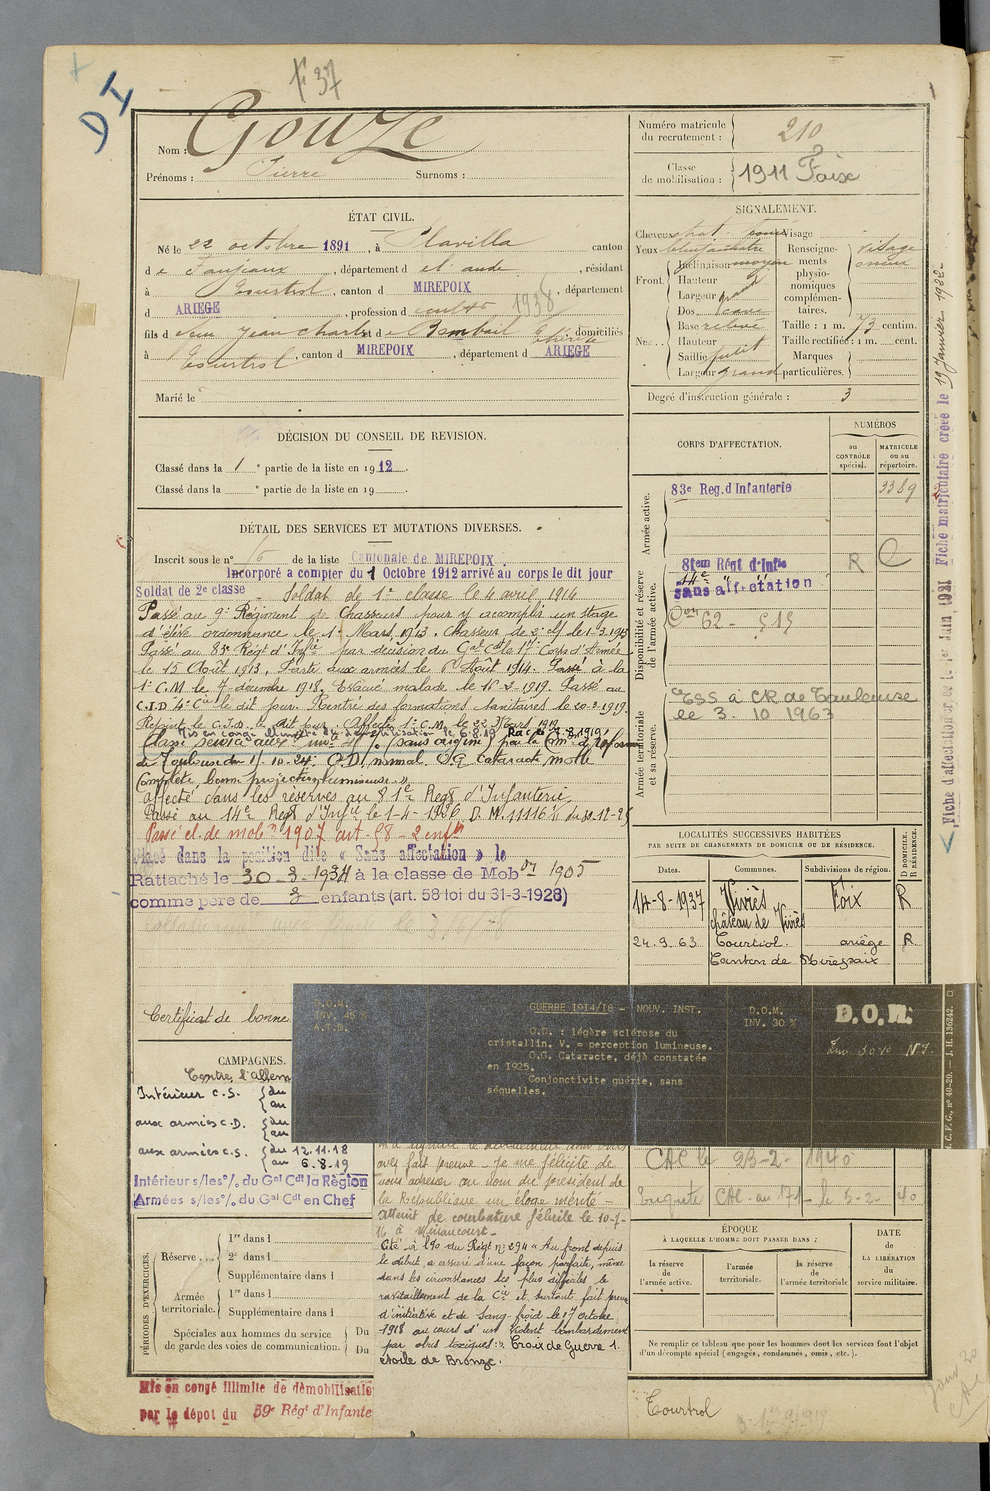 DI
F. 37
Nom : Gouze
Prénoms : Pierre Surnoms :
ÉTAT CIVIL.
Né le 22 octobre 1891, à Plavilla canton
de Fanjeaux, département de l'aude, résidant
à Tourtrol, canton d MIREPOIX, département
d ARIEGE, profession d cultr 1938
fils de feu Jean Charles et de domiciliés
à Tourtrol, canton d MIREPOIX, département d ARIEGE
Marié le
DÉCISION DU CONSEIL DE REVISION.
Classé dans la 1e partie de la liste en 1912.
Classé dans la e partie de la liste en 19
DÉTAIL DES SERVICES ET MUTATIONS DIVERSES.
Inscrit sous le n° 6 de la liste Cantonale de MIREPOIX.
Incorporé a compter du 1 Octobre 1912 arrivé au corps le dit jour
Soldat de 2e classe - Soldat de 1e classe le 4 avril 1914
Passé au 9e Régiment de Chasseurs pour y accomplir un stage
d'élève ordonnance le 1er Mars 1913. Chasseur de 2e cl le 1-3-1913
Passé au 83e Régt d'Infie par décision du Gal Cdt le 17e Corps d'Armée
le 15 Août 1913. Parti aux armées le 6 Août 1914. Passé à la
1e C.M le 7 décembre 1918. Evacué malade le 16-2-1919. Passé au
C.I.D 4e Cie le dit jour. Rentré des formations sanitaires le 20-3-1919.
Rejoint le C.I.D. le dit jour. Affecté 1e C.M. le 22 Mars 1919
Mis en congé illimité de démobilisation le 6.8.19 Rac le 7.8.1919
Classé service aux (sans origine) par la Con de réforme
de Toulouse du 1/-10-24: O.D. normal. O.G. cataracte molle
complète bonne projection lumineuse. »
affecté dans les réserves au 81e Regt d'Infanterie
Passé au 14e Regt d'Infie le 1-4-1926 D.M. 11116 du 30-12-25
Passé cl. de mobon 1907 art. 58 - 2 enfts
Placé dans la position dite « Sans affectation » le
Rattaché le 30-3-1934 à la classe de Mobon 1905
comme père de 3 enfants (art. 58 loi du 31-3-1928)
Certificat de bonne
CAMPAGNES.
Contre l'Allem
Intérieur C.S. du
au
aux armées C.D. du
au
aux armées C.S. du 12.11.18
au 6.8.19
Intérieur s/les % du Gal Cdt la Région
Armées s/les % du Gal Cdt en Chef
PÉRIODES D'EXERCICES.
Réserve... 1re dans l
2e dans l
Supplémentaire dans l
Armée territoriale. 1re dans l
Supplémentaire dans l
Spéciales aux hommes du service Du
de garde des voies de communication. Du
Mis en congé illimité de démobilisatio
par le dépot du 59e Régt d'Infante
avez fait preuve - Je me félicite de
vous adresser au nom du président de
la République un éloge mérité -
Atteint de courbature fébrile le 10-7-
16 à Minaucourt -
Cité à l'Odre du Régt n° 294 « Au front depuis
le début, a assuré d'une façon parfaite, même
dans les circonstances les plus difficiles le
ravitaillement de la Cie et surtout fait preuve
d'initiative et de Sang-froid le 17 octobre
1918 au cours d'un violent bombardement
par obus toxiques » Croix de Guerre 1.
étoile de Bronze.
Numéro matricule
du recrutement : 210
Classe
de mobilisation : 1911 Foix
SIGNALEMENT.
Cheveux chat. foncé
Yeux
Front. Inclinaison moyen
Hauteur
Largeur grand
Nez... Dos cave
Base relevé
Hauteur
Saillie petit
Largeur grand
Visage
Renseignements physionomiques complémentaires. visage osseux
Taille : 1 m. 73 centim.
Taille rectifiée : 1 m. cent.
Marques
particulières.
Degré d'instruction générale : 3
CORPS D'AFFECTATION.
NUMÉROS
au
CONTRÔLE
spécial.
MATRICULE
ou au
répertoire.
Armée active.
83e Reg.d'Infanterie 3389
Disponibilité et réserve
de l'armée active.
81em Régt d'Infie R C
14e
sans affectation
Con 62 - 515
Armée territoriale
et sa réserve.
Ce ESS à CR de Toulouse
le 3.10.1963
LOCALITÉS SUCCESSIVES HABITÉES
PAR SUITE DE CHANGEMENTS DE DOMICILE OU DE RÉSIDENCE.
Dates. Communes. Subdivisions de région. D DOMICILE. R RÉSIDENCE.
14-8-1937 Viviès Foix R
château de Viviès
24.9.63 Tourtrol. ariège R
Canton de Mirepoix
D.O.M.
INV. 45 %
A.T.D.
GUERRE 1914/18 - NOUV. INST.
O.D. : légère sclérose du
cristallin. V. = perception lumineuse.
O.G. Cataracte, déjà constatée
en 1925.
Conjonctivite guérie, sans
séquelles.
D.O.M.
INV. 30 %
D.O.M.
Inv 30 %
I. C. V. G., n° 40-20. — J. H. 136242.
CAC le 23-2-1940
Enquete CAC au 171 - le 5-2-40
ÉPOQUE
À LAQUELLE L'HOMME DOIT PASSER DANS :
la réserve
de
l'armée active.
l'armée
territoriale.
la réserve
de
l'armée territoriale
DATE
de
LA LIBÉRATION
du
service militaire.
Ne remplir ce tableau que pour les hommes dont les services font l'objet
d'un décompte spécial (engagés, condamnés, omis, etc.).
Tourtrol
Fiche d'affectation et le 1er Juin 1921 Fiche matriculaire créée le 19 Janvier 1922